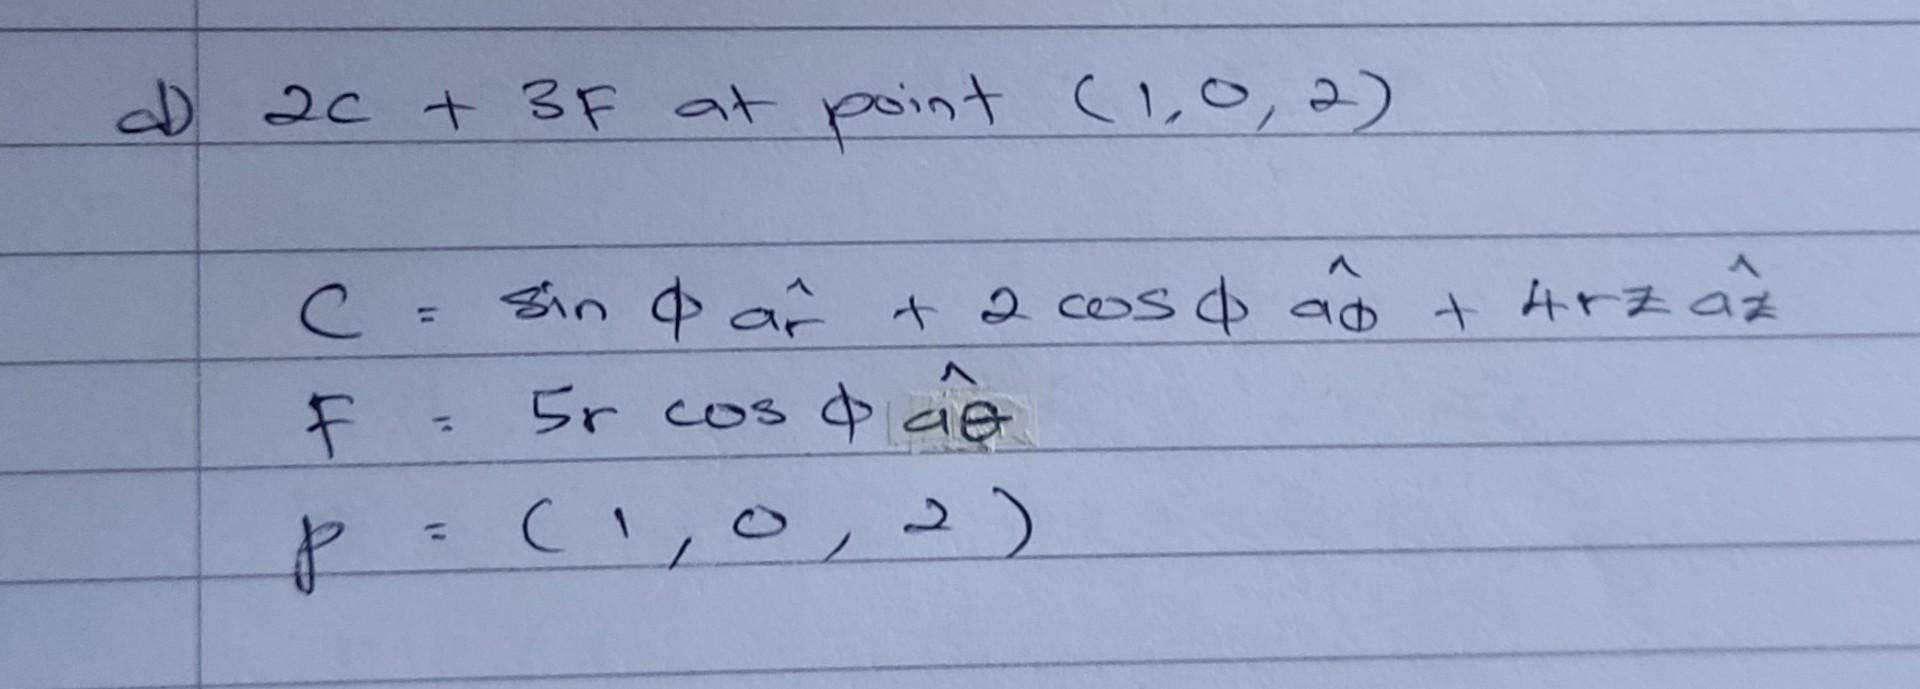 d) 2C + 3F at point (1,0,2)
C = sin ϕ âr + 2 cos ϕ âϕ + 4rz âz
F = 5r cos ϕ âθ
p = (1,0,2)